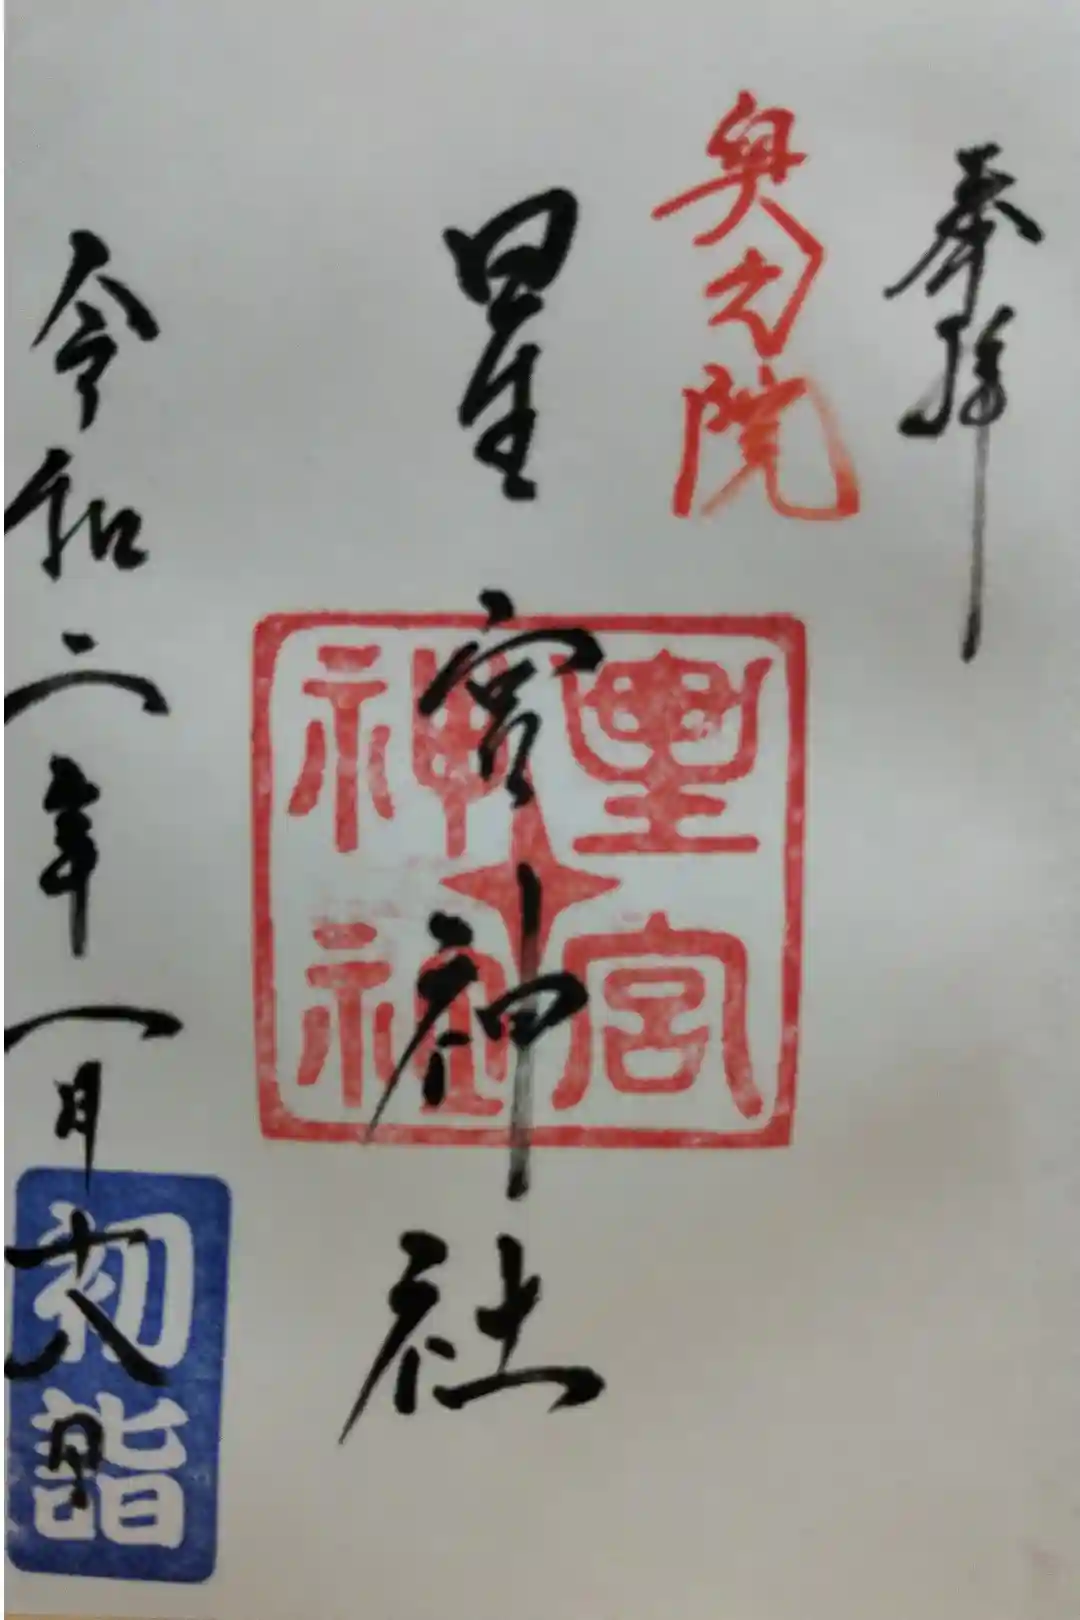 奉拝
奥之院
星宮神社
星宮
神社
令和二年一月十八日
初詣